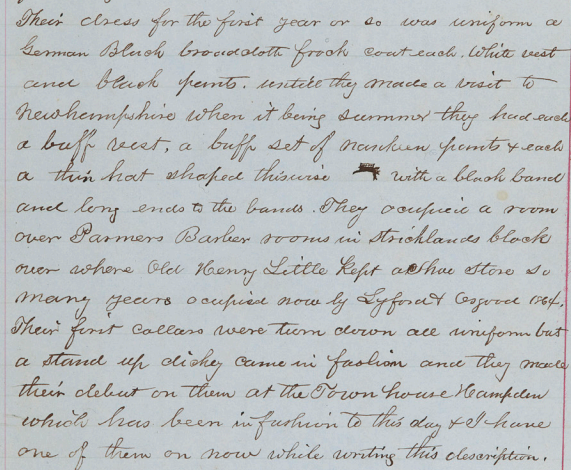 Their dress for the first year or so was uniform a
German Black broadcloth frock coat each. White vest
and black pants. untill they made a visit to
Newhampshire when it being summer they had each
a buff vest, a buff set of nankeen pants & each
a thin hat shaped thiswise with a black band
and long ends to the bands. They ocupied a room
over Parmers Barber rooms in Stricklands block
over where Old Henry Little Kept a Shoe store so
many years ocupied now by Lyford & Osgood 1864.
Their first collars were turn down all uniform but
a stand up dickey came in fashion and they made
their debut on them at the Town house Hampden
which has been in fashion to this day & I have
one of them on now while writing this description.